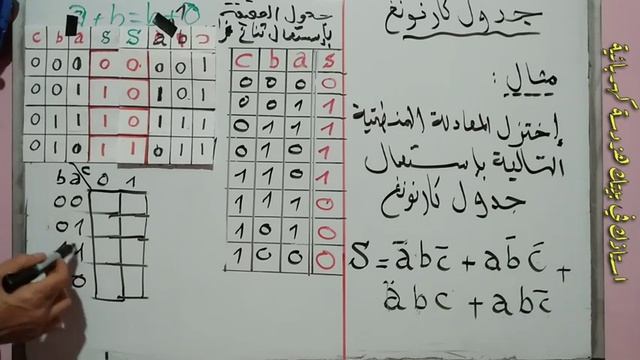 جدول كارنونغ
مثال :
إختزل المعادلة المنطقية
التالية بإستعمال
جدول كارنونغ
S = a̅bc̅ + ab̅c̅ +
a̅bc + abc̅
جدول الحقيقة
بإستعمال نتائج
c b a s
0 0 0 0
0 0 1 1
0 1 1 1
0 1 0 1
1 1 0 1
1 1 1 0
1 0 1 0
1 0 0 0
a + b = b + 0
c b a S S a b c
0 0 0 1 0 0 0 1
0 0 1 1 0 1 0 1
0 1 1 1 0 1 1 1
0 1 0 1 1 0 1 1
ba c 0 1
00
01
1
0